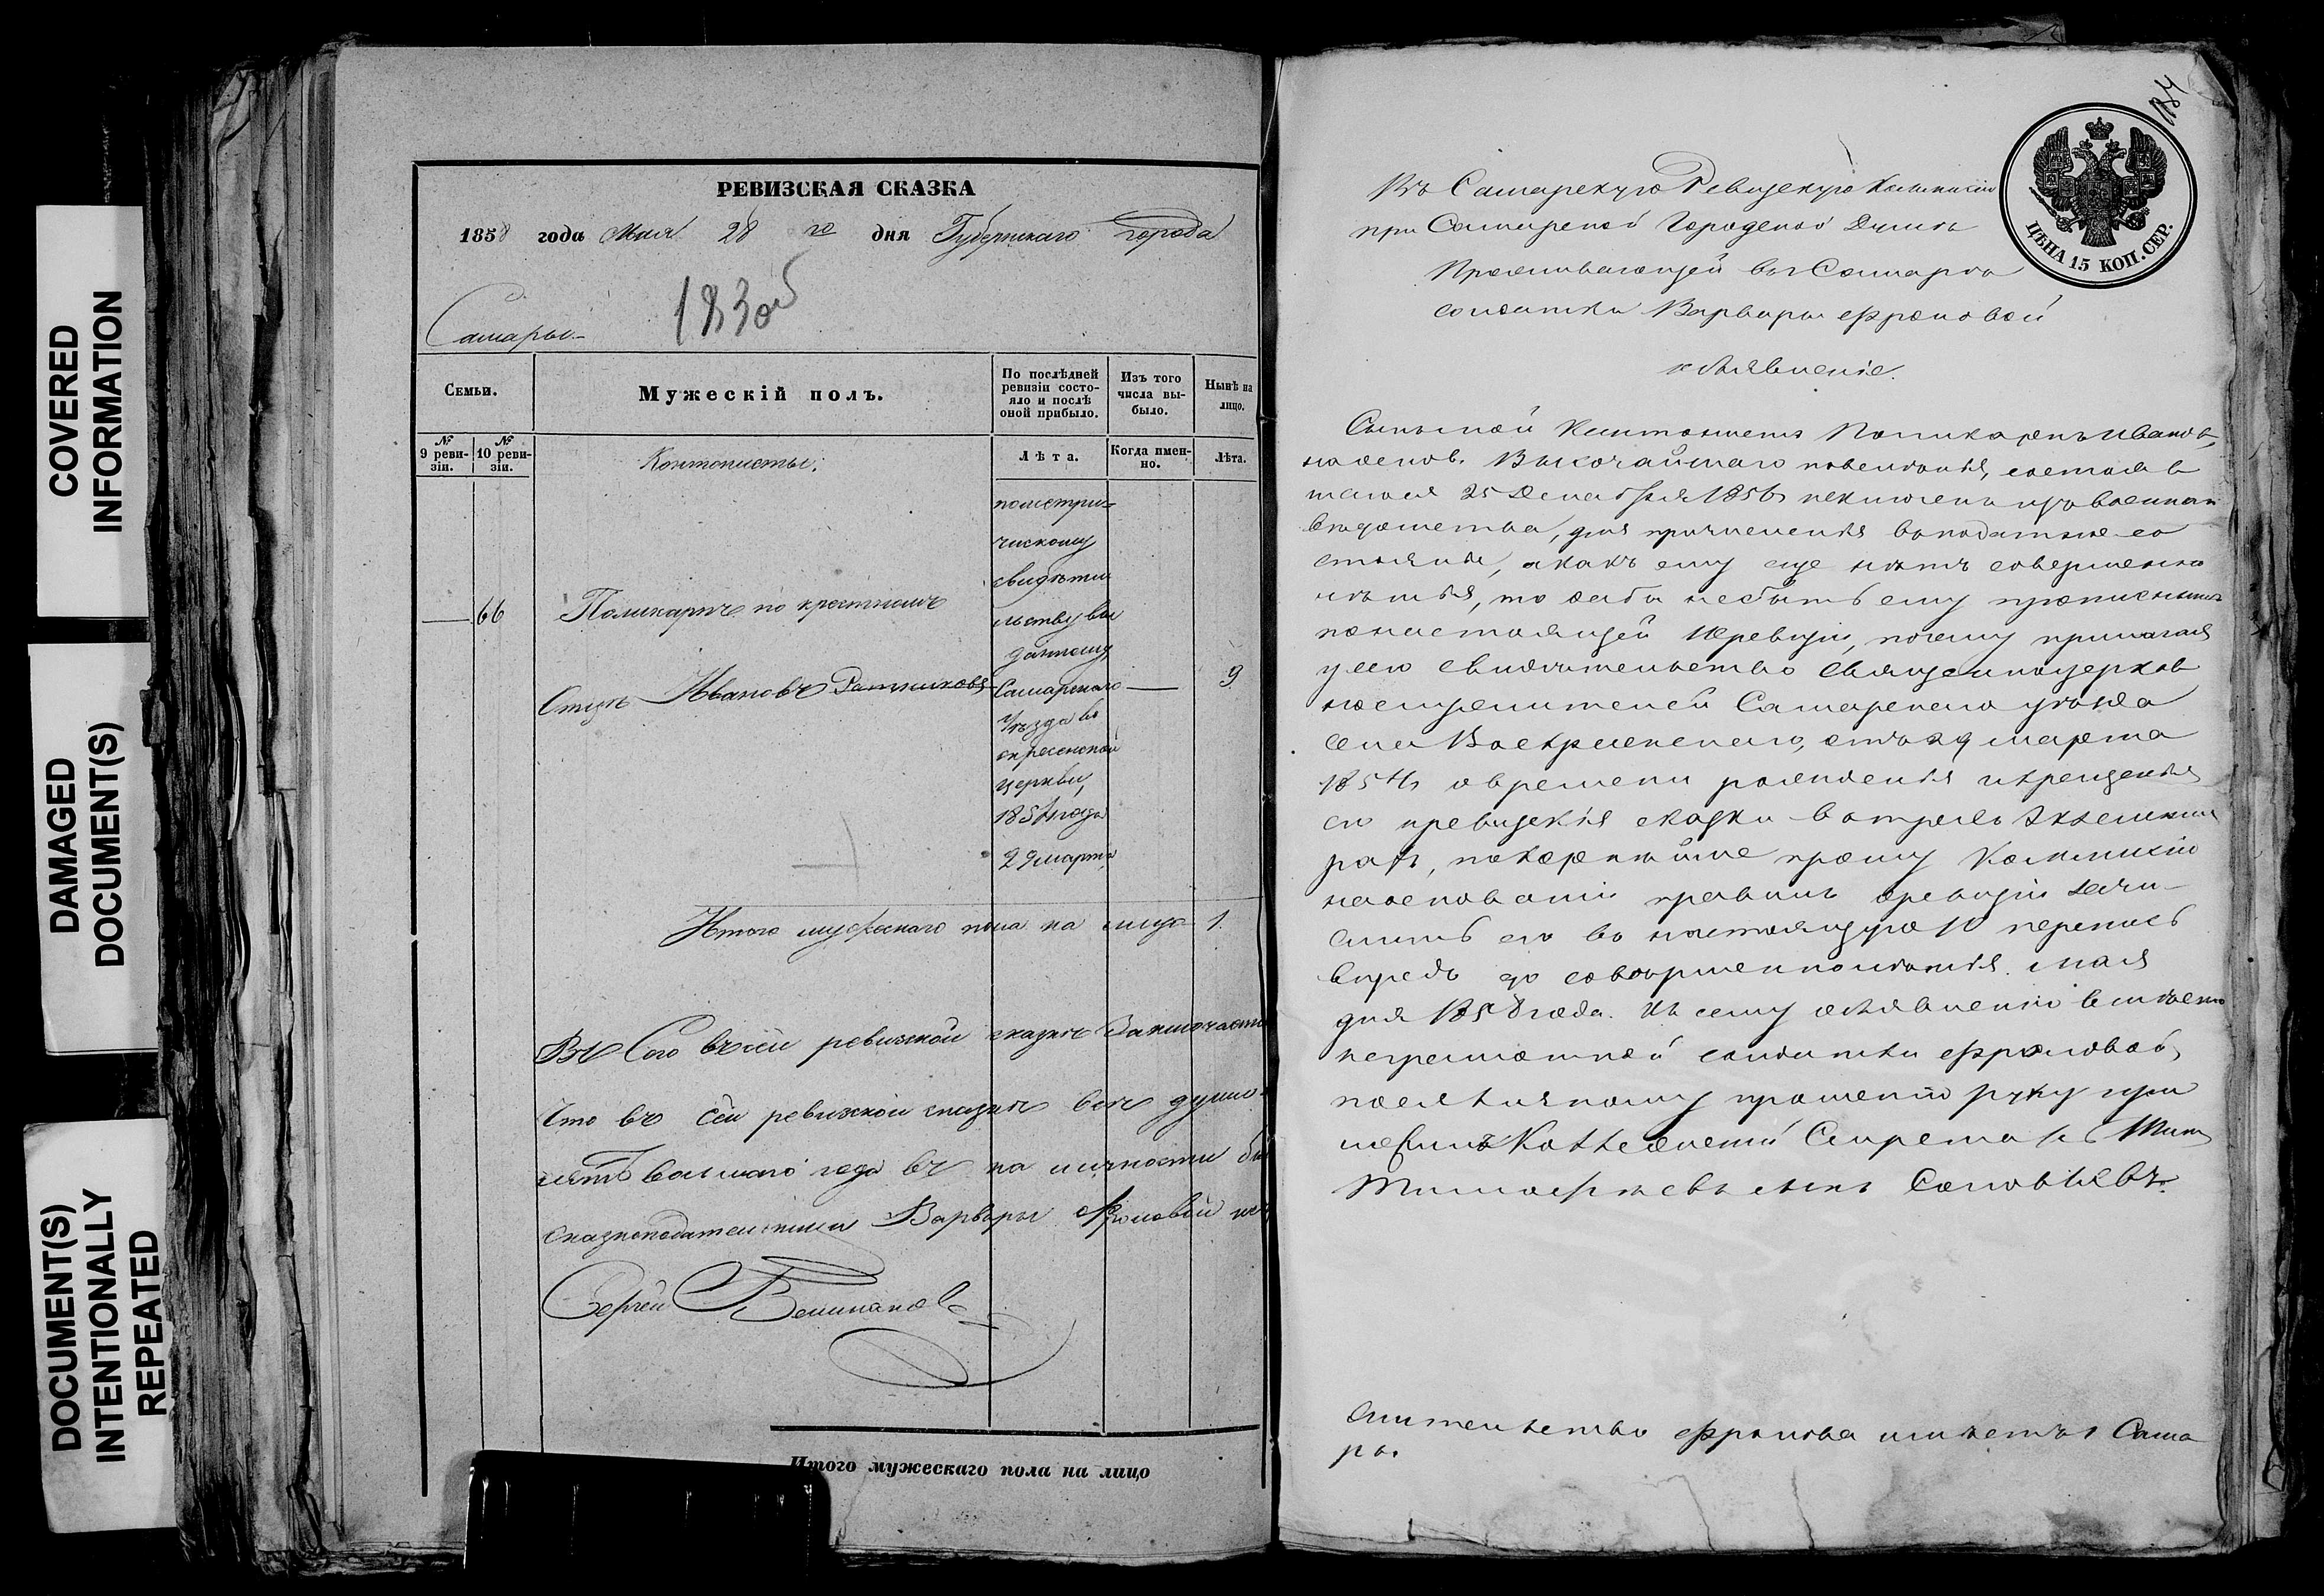 COVERED
INFORMATION
DAMAGED
DOCUMENT(S)
DOCUMENT(S)
INTENTIONALLY
REPEATED
РЕВИЗСКАЯ СКАЗКА
1858 года Мая 28 го дня Губернскаго города
Самары.
183 об
Семьи.
Мужескій полъ.
По послѣдней
ревизіи состо-
яло и послѣ
оной прибыло.
Изъ того
числа вы-
было.
Нынѣ на
лицо.
№
9 реви-
зіи.
№
10 реви-
зіи.
Кантонисты.
Лѣта.
Когда имен-
но.
Лѣта.
пометри-
ческому
свидѣтел
льству вы
данному
66 Поликарпъ по крестному
Отцу Ивановъ
Самарскаго 9
Уѣзда Во
скресенской
церкви,
1854 года
29 марта
Итого мужескаго пола на лицо 1.
ревизской сказкѣ
Что въ сей ревизской сказкѣ всѣ душ
года въ на личности
сказкоподательницы Варвары Фроловой
Сергей
Итого мужескаго пола на лицо
184
ЦѢНА 15 КОП. СЕР.
Въ Самарскую Ревизскую Коммисію
при Самарской Городской Думѣ
Проживающей въ г Самарѣ
солдатки Варвары Фроловой
объявленіе.
Сынъ мой Кантонистъ Поликарпъ Ивановъ,
на основ. Высочайшаго повелѣнія, состояв
шагося 25 Декабря 1856 исключенъ изъ военнаго
вѣдомства, для причисленія въ податное со
стояніе, а какъ ему еще нѣтъ совершенно
лѣтія, то дабы не быть ему прописнымъ
по настоящей 10 ревизіи, почему прилагая
у сего свидѣтельство священноцерков
нослужителей Самарскаго уѣзда
села Воскресенскаго, отъ 29 марта
1854 о времени рожденія и крещенія
его и ревизскія сказки в трехъ экземпля
рахъ, покорнѣйше прошу Коммисію
на основаніи правилъ о ревизіи зачи-
слить его въ настоящую 10 перепись
впредь до совершеннолѣтія. Мая
дня 1858 года. Къ сему объявленію вмѣсто
неграмотной солдатки Фроловой,
по ея личному прошенію руку при
ложилъ Коллежскій Секретарь
Тимофеевъ сынъ Соловьевъ.
Жительство Фролова имѣетъ в г Сама
рѣ.